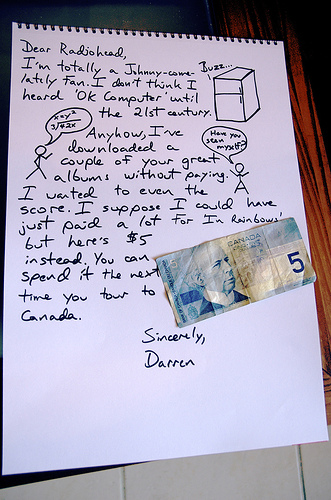 Dear Radiohead,
I'm totally a Johnny-come-
lately fan. I don't think I
heard 'OK Computer' until
the 21st century.
Buzz...
x=y²
3√42x
Have you
seen
myself?
Anyhow, I've
downloaded a
couple of your great
albums without paying.
I wanted to even the
score. I suppose I could have
just paid a lot for 'In Rainbows,'
but here's $5
instead. You can
spend it the next
time you tour to
Canada.
CANADA
5
Sincerely,
Darren